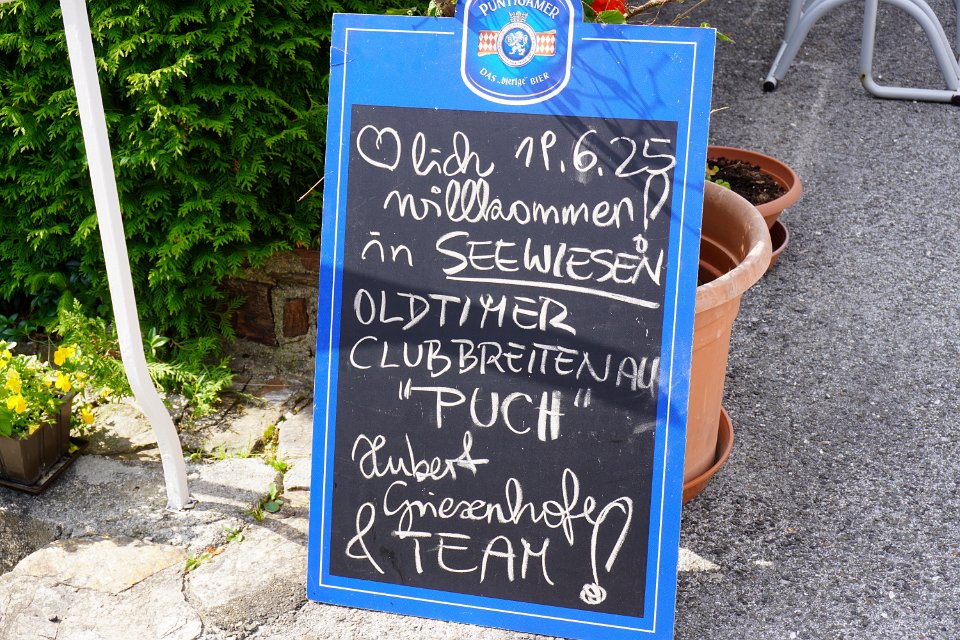 PUNTIGAMER
DAS "bierige" BIER
♡lich 19.6.25
willkommen!
in SEEWIESEN
OLDTIMER
CLUB BREITENAU
"PUCH"
Hubert
Griesenhofer
& TEAM!